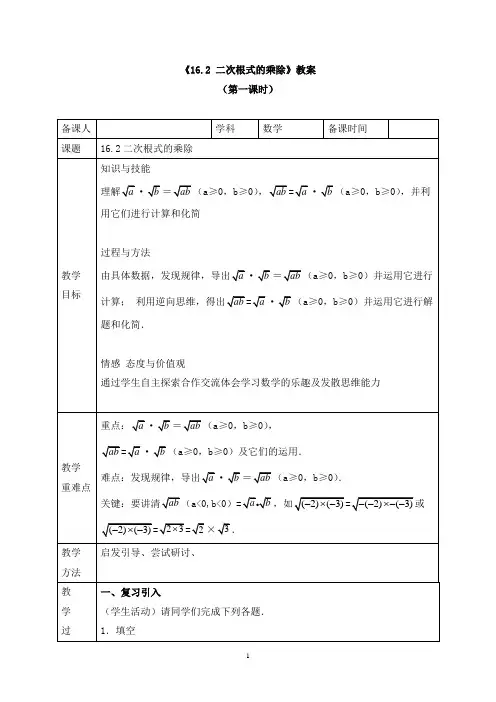 《16.2 二次根式的乘除》教案
（第一课时）
备课人 学科 数学 备课时间
课题 16.2二次根式的乘除
教学
目标
知识与技能
理解√a·√b＝√ab（a≥0，b≥0），√ab=√a·√b（a≥0，b≥0），并利
用它们进行计算和化简
过程与方法
由具体数据，发现规律，导出√a·√b＝√ab（a≥0，b≥0）并运用它进行
计算； 利用逆向思维，得出√ab=√a·√b（a≥0，b≥0）并运用它进行解
题和化简．
情感 态度与价值观
通过学生自主探索合作交流体会学习数学的乐趣及发散思维能力
教学
重难点
重点：√a·√b＝√ab（a≥0，b≥0），
√ab=√a·√b（a≥0，b≥0）及它们的运用．
难点：发现规律，导出√a·√b＝√ab（a≥0，b≥0）．
关键：要讲清√ab（a<0,b<0）=√a•√b，如√(−2)×(−3)=√−(−2)×−(−3)或
√(−2)×(−3)=√2×3=√2×√3．
教学
方法
启发引导、尝试研讨、
教
学
过
一、复习引入
（学生活动）请同学们完成下列各题．
1．填空
1